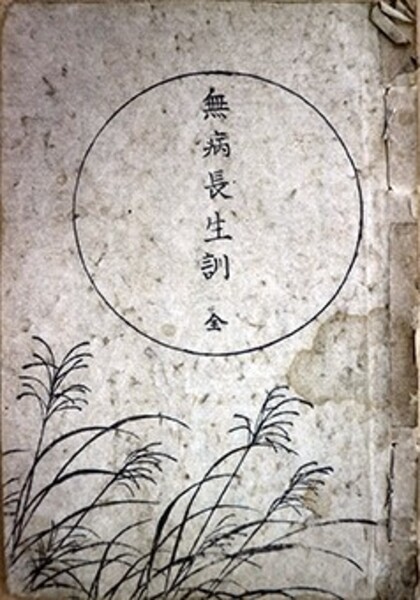 無病長生訓 全